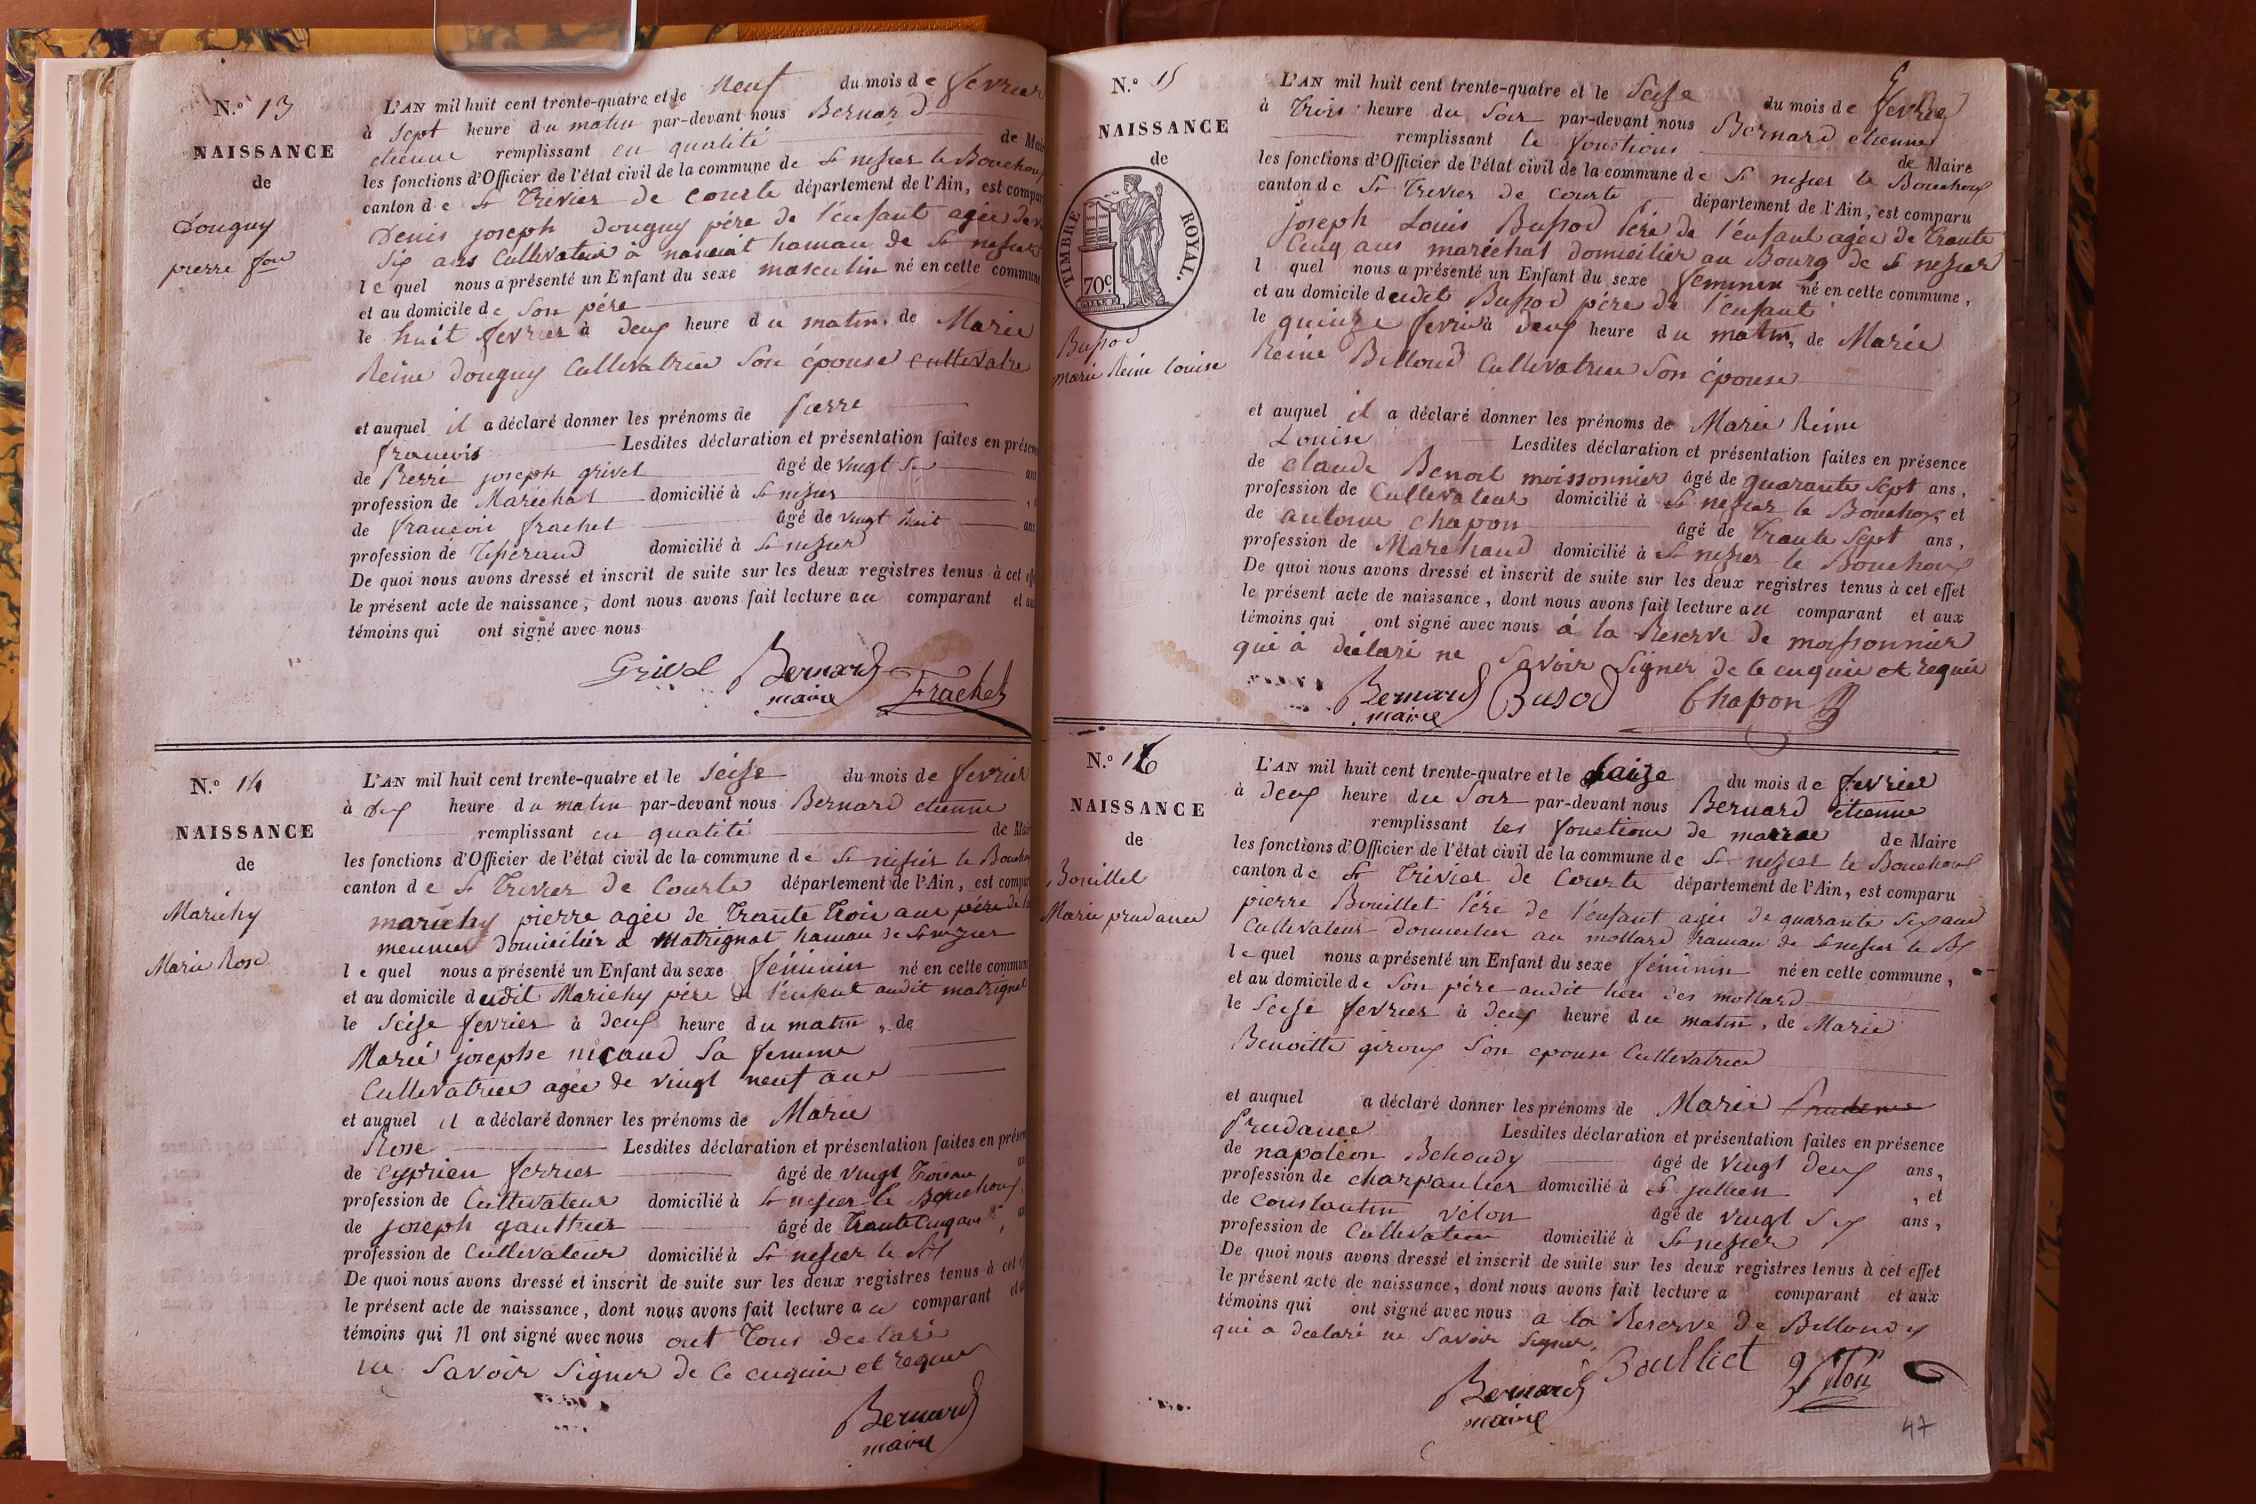 N.º 13
NAISSANCE
de
Douguy
pierre fois
L'AN mil huit cent trente-quatre et le neuf du mois de fevrier
à sept heure du matin par-devant nous Bernard
etienne remplissant en qualité de Mair
les fonctions d'Officier de l'état civil de la commune de St nesier le Bouchoux
canton de St Trivier de Courte département de l'Ain, est compar
Denis joseph Douguy pére de l'enfant agée de
Six ans Cultivateur à hamau de St nesier
lequel nous a présenté un Enfant du sexe masculin né en cette commune
et au domicile de Son pére
le huit fevrier à deux heure du matin, de Marie
Reine Douguy Cultivatrice Son épouse cultivatri
et auquel il a déclaré donner les prénoms de pierre
francois Lesdites déclaration et présentation faites en présen
de Pierre joseph grivel âgé de vingt Six ans
profession de Maréchal domicilié à St nesier
de francois frachet âgé de vingt huit ans
profession de Tisserand domicilié à St nesier
De quoi nous avons dressé et inscrit de suite sur les deux registres tenus à cet eff
le présent acte de naissance, dont nous avons fait lecture au comparant et au
témoins qui ont signé avec nous
Grivel Bernard Frachet
maire
N.º 14
NAISSANCE
de
Marichy
Marie Rose
L'AN mil huit cent trente-quatre et le Seise du mois de fevrier
à Dix heure du matin par-devant nous Bernard etienne
remplissant en qualité de Mair
les fonctions d'Officier de l'état civil de la commune de St nesier le Bouchou
canton de St Trivier de Courte département de l'Ain, est compar
marichy pierre agée de Trante Trois ans pére de l
meunier domicilier à Matrignat hamau de St nesier
lequel nous a présenté un Enfant du sexe féminin né en cette commune
et au domicile dudit Marichy pére de l'enfent audit matrignat
le Seise fevrier à deux heure du matin, de
Marie josephe nicaud Sa femme
Cultivatrice agée de vingt neuf ans
et auquel il a déclaré donner les prénoms de Marie
Rose Lesdites déclaration et présentation faites en présen
de Cyprien ferrier âgé de vingt Trois ans
profession de Cultivateur domicilié à St nesier le Bouchoux
de joseph gauthier âgé de Trante Cinq ans
profession de Cultivateur domicilié à St nesier le Bx
De quoi nous avons dressé et inscrit de suite sur les deux registres tenus à cet
le présent acte de naissance, dont nous avons fait lecture au comparant et a
témoins qui n ont signé avec nous ont Tous declaré
ne Savoir Signer de Ce enquie et requie
Bernard
maire
N.º 15
NAISSANCE
de
TIMBRE ROYAL.
70 c.
Bussod
marie Reine louise
L'AN mil huit cent trente-quatre et le Seise du mois de fevrier
à Trois heure du Soir par-devant nous Bernard etienne
remplissant le fonctions de Maire
les fonctions d'Officier de l'état civil de la commune de St nesier le Bouchoux
canton de St Trivier de Courte département de l'Ain, est comparu
joseph Louis Bussod Pére de l'enfant agée de Trante
Cinq ans maréchal domicilier au Bourg de St nesier
l quel nous a présenté un Enfant du sexe feminin né en cette commune,
et au domicile dudit Bussod pére de l'enfant
le quinze fevrier à deux heure du matin, de Marie
Reine Billoud Cultivatrice Son épouse
et auquel il a déclaré donner les prénoms de Marie Reine
Louise Lesdites déclaration et présentation faites en présence
de claude Benoit moissonnier âgé de quarante Sept ans,
profession de Cultivateur domicilié à St nesier le Bouchoux et
de antoine chapon âgé de Trante Sept ans,
profession de Marchand domicilié à St nesier le Bouchoux
De quoi nous avons dressé et inscrit de suite sur les deux registres tenus à cet effet
le présent acte de naissance, dont nous avons fait lecture au comparant et aux
témoins qui ont signé avec nous à la Reserve de moissonnier
qui à déclaré ne Savoir Signer de Ce enquie et requie
Bernard Busod Chapon
maire
N.º 16
NAISSANCE
de
Bouillet
Marie prudance
L'AN mil huit cent trente-quatre et le Saize du mois de fevrier
à deux heure du Soir par-devant nous Bernard etienne
remplissant les fonctions de maire de Maire
les fonctions d'Officier de l'état civil de la commune de St nesier le Bouchoux
canton de St Trivier de Courte département de l'Ain, est comparu
pierre Bouillet Pére de l'enfant agée de quarante Six ans
Cultivateur domicilier au mollard hamau de St nesier le Bx
lequel nous a présenté un Enfant du sexe féminin né en cette commune,
et au domicile de Son pére audit lieu des mollard
le Seise fevrier à deux heure du matin, de Marie
Benoitte giroux Son epouse Cultivatrice
et auquel a déclaré donner les prénoms de Marie Prudence
Prudance Lesdites déclaration et présentation faites en présence
de napoléon âgé de vingt deux ans,
profession de charpantier domicilié à St jullien , et
de Constantin vélon âgé de vingt Six ans,
profession de Cultivateur domicilié à St nesier
De quoi nous avons dressé et inscrit de suite sur les deux registres tenus à cet effet
le présent acte de naissance, dont nous avons fait lecture a comparant et aux
témoins qui ont signé avec nous a la Reserve de
qui a declaré ne Savoir Signer.
Bernard Boulliet
maire
47